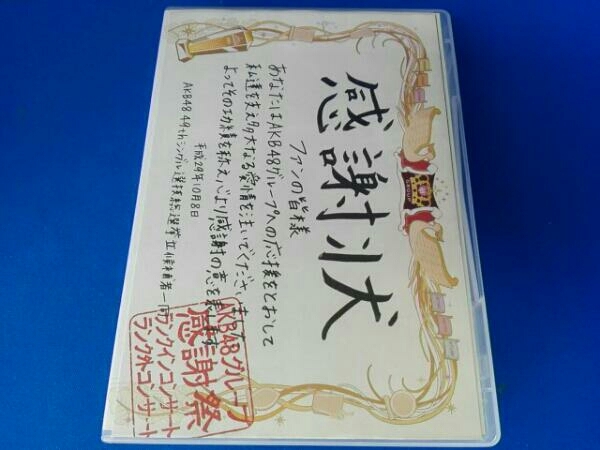 感謝状
ファンの皆様
あなたはAKB48グループへの応援をとおして
私達を支え多大なる愛情を注いでくださいました
よってその功績を称え心より感謝の意を表します
平成29年10月8日
AKB48 49thシングル選抜総選挙立候補者一同
AKB48グループ
感謝祭
ランクインコンサート
ランク外コンサート